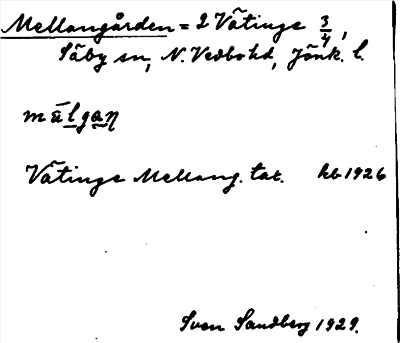 Mellangården = 2 Vätinge 3/4,
Säby sn, N. Vedbohd, Jönk. l.
mälgaŋ
Vätinge Mellang. tat. hb 1926
Sven Sandberg 1929.